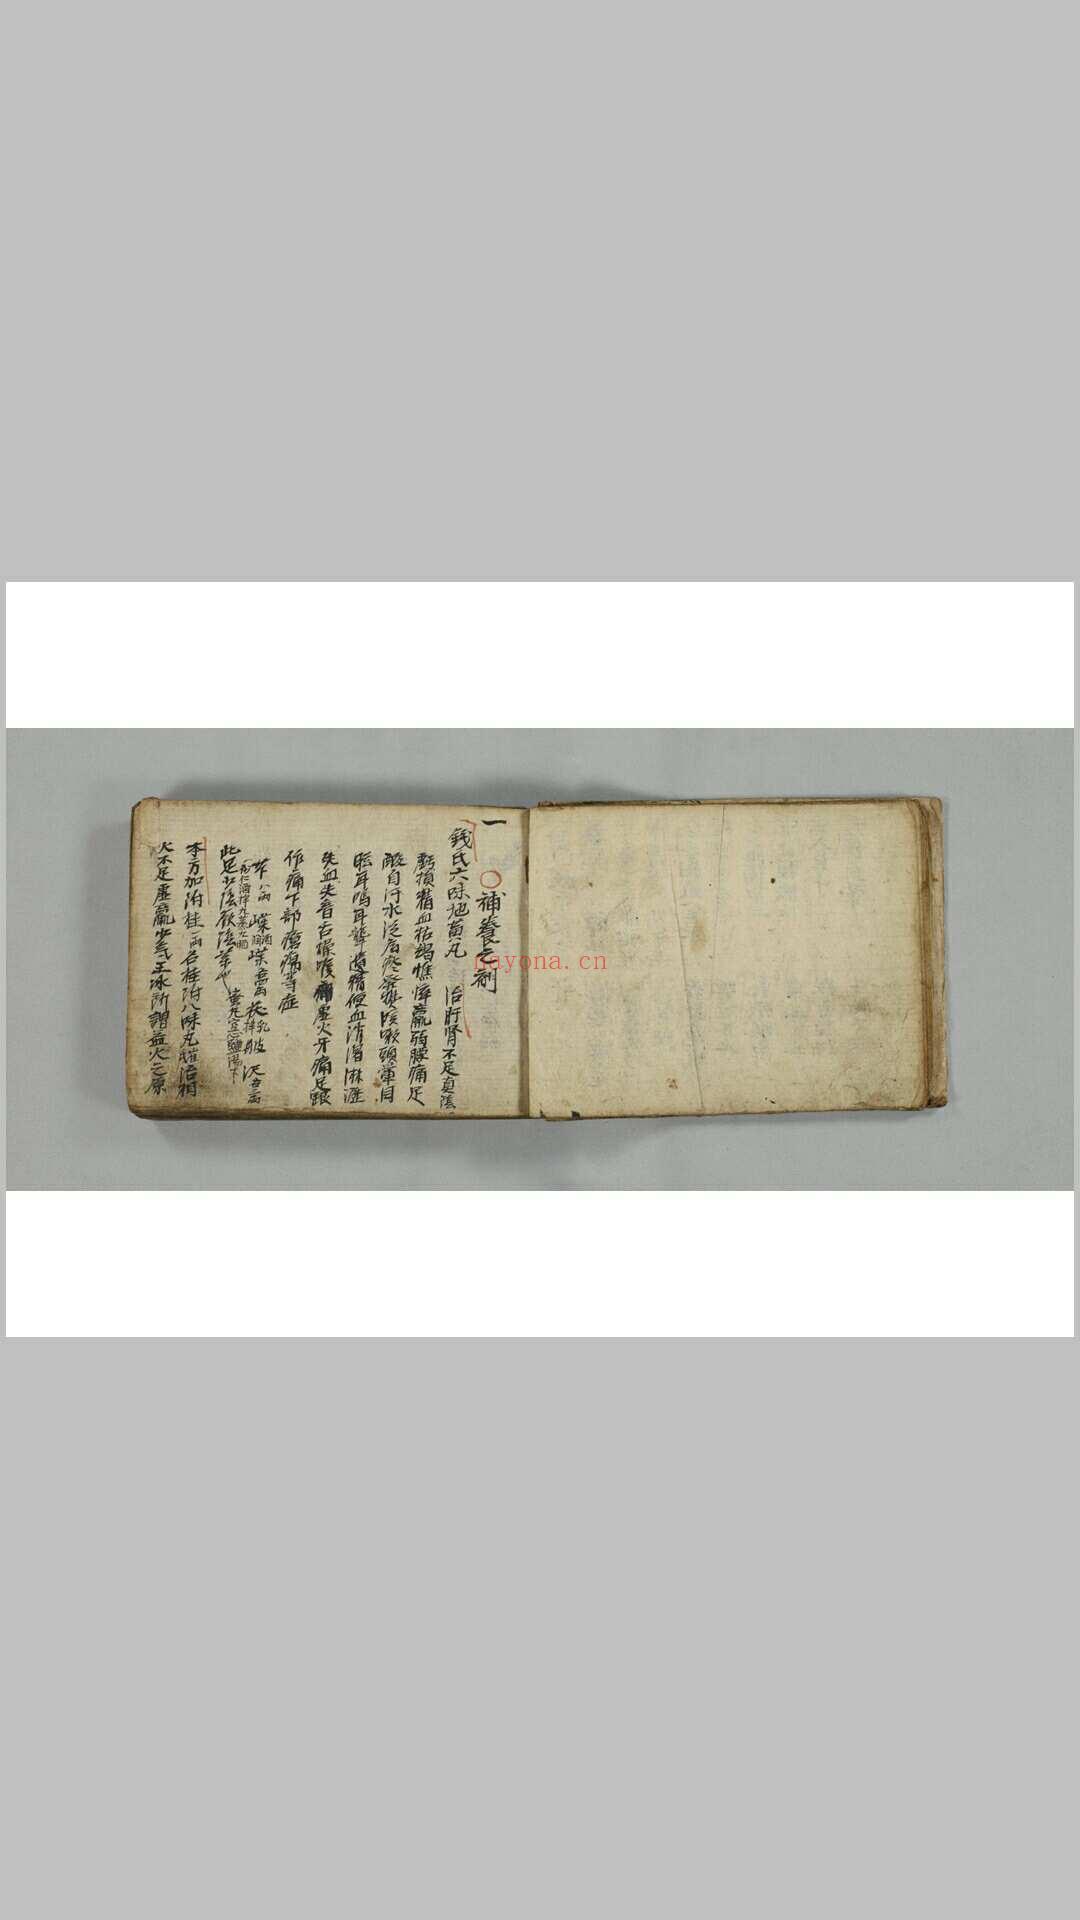 一 補養之劑
錢氏六味地黃丸 治肝腎不足真陰
虧損精血枯竭憔悴羸弱腰痛足
酸自汗水泛為痰發熱咳嗽頭暈目
眩耳鳴耳聾遺精便血消渴淋瀝
失血失音舌燥喉痛虛火牙痛足跟
作痛下部瘡瘍等症
八兩
此足少陰厥陰藥也
本方加附桂一兩名桂附八味丸 治相
火不足虛羸少氣王冰所謂益火之原
nayona.cn